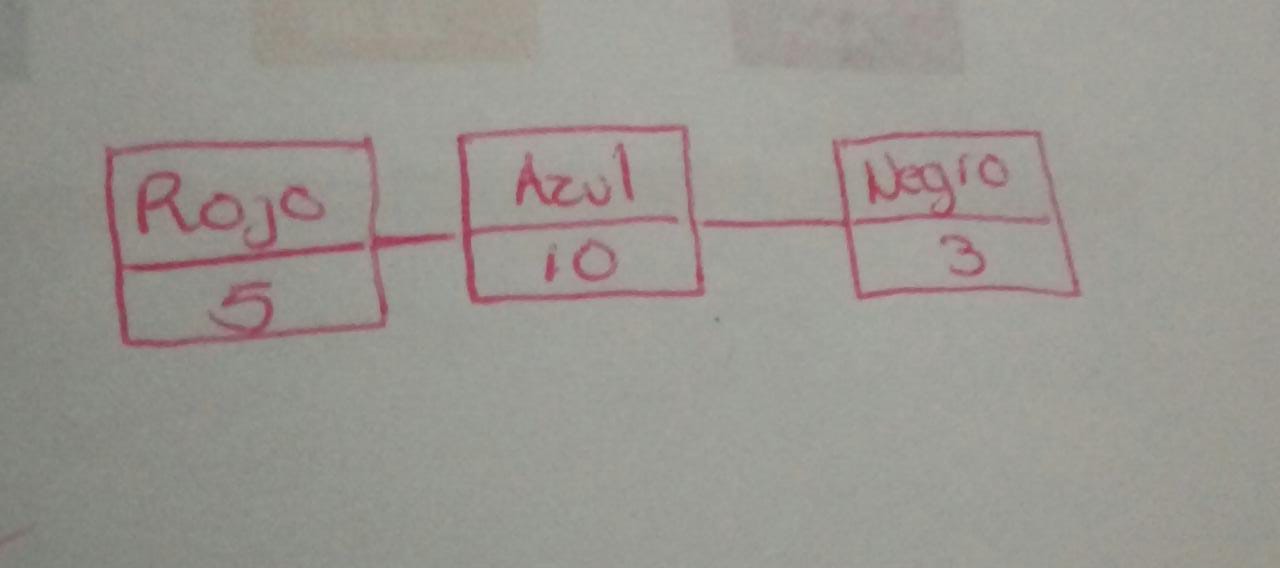 Rojo
5
Azul
10
Negro
3